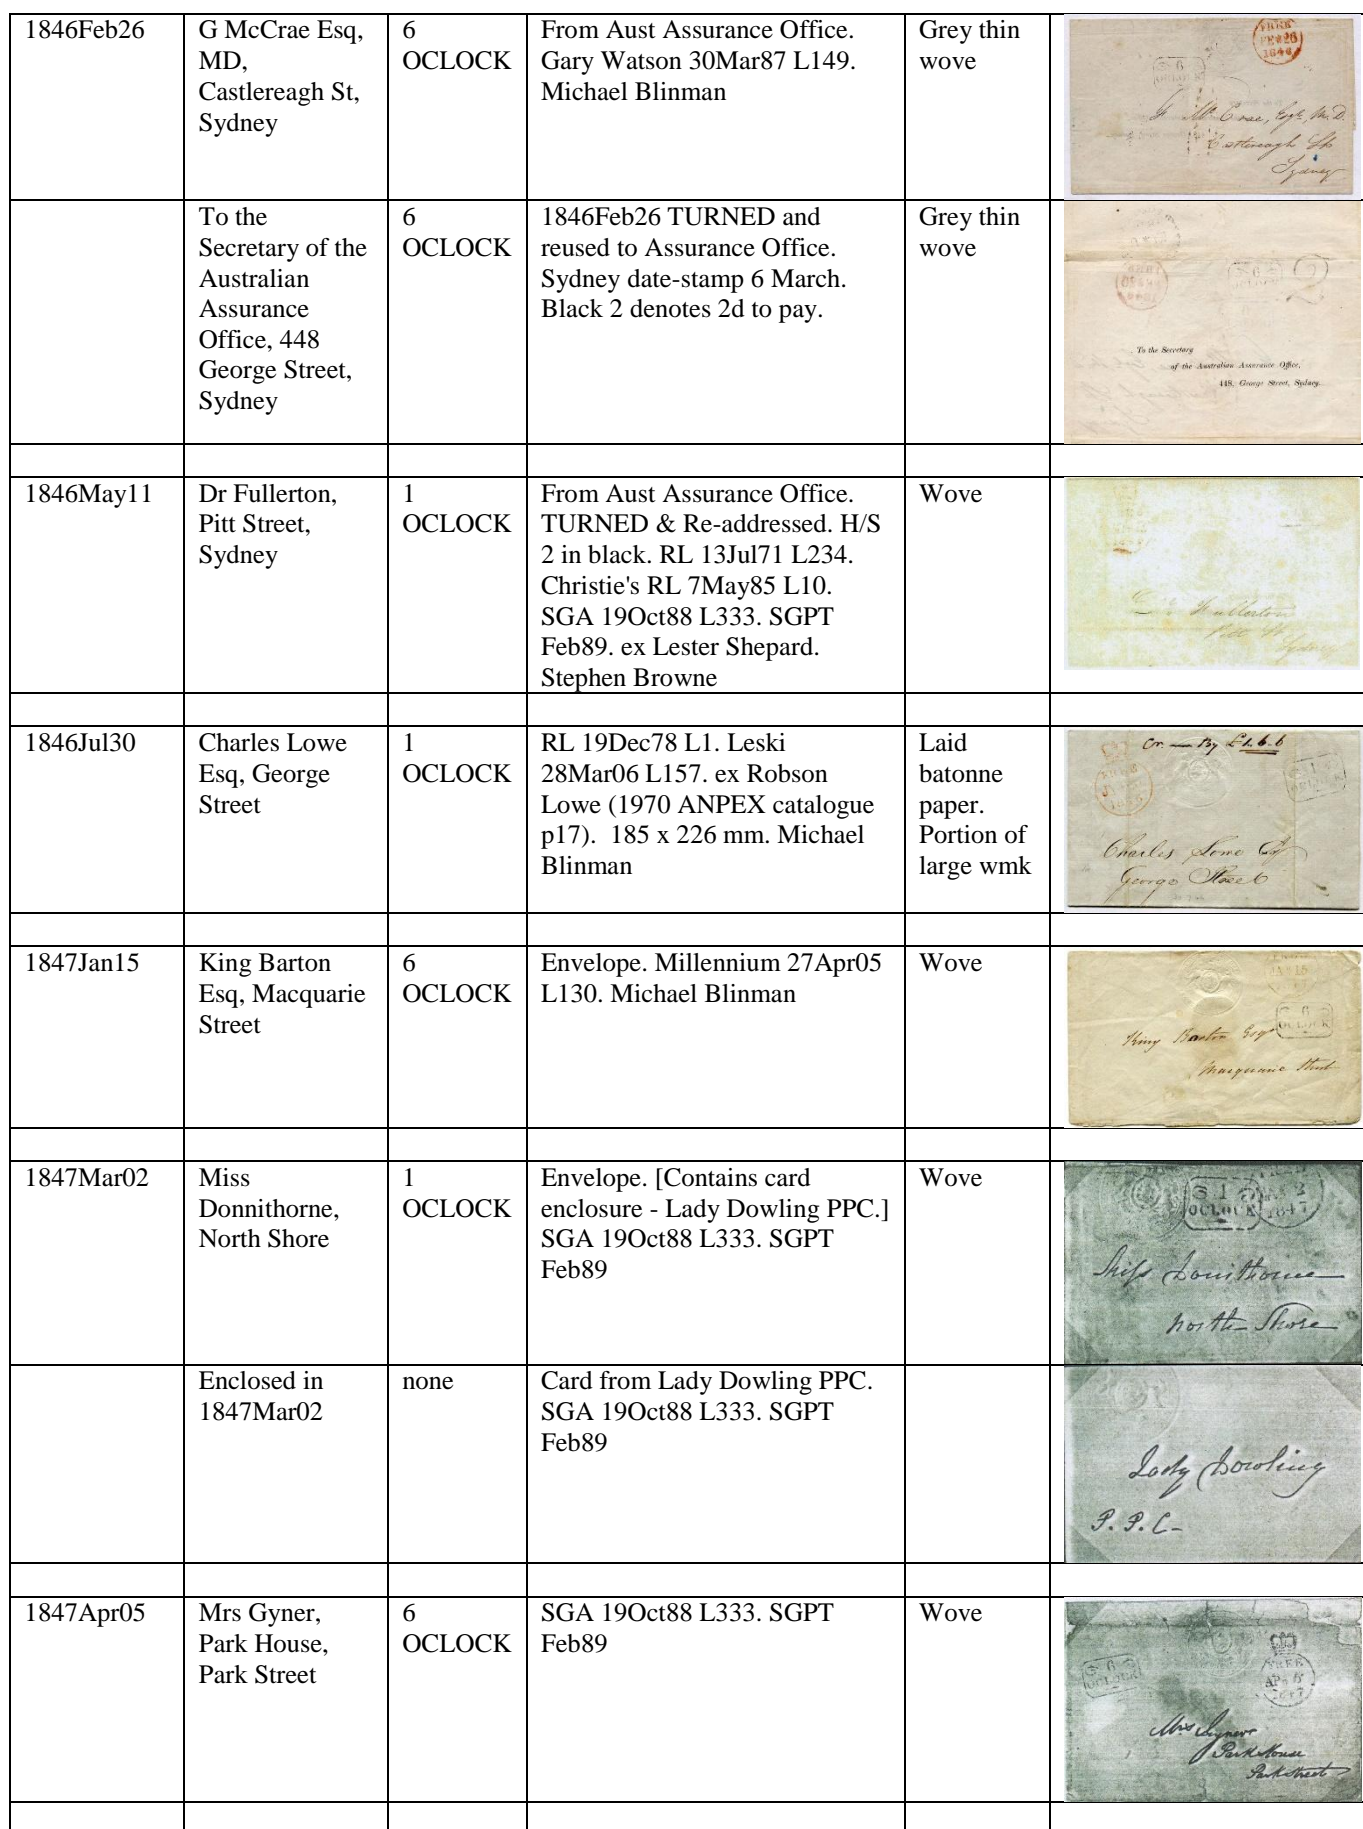 1846Feb26
G McCrae Esq,
MD,
Castlereagh St,
Sydney
6
OCLOCK
From Aust Assurance Office.
Gary Watson 30Mar87 L149.
Michael Blinman
Grey thin
wove
FREE
FE*26
1846
6
OCLOCK
Mc Crae, Esqre, M.D.
Castlereagh St
Sydney
To the
Secretary of the
Australian
Assurance
Office, 448
George Street,
Sydney
6
OCLOCK
1846Feb26 TURNED and
reused to Assurance Office.
Sydney date-stamp 6 March.
Black 2 denotes 2d to pay.
Grey thin
wove
2
To the Secretary
of the Australian Assurance Office,
448, George Street, Sydney.
1846May11
Dr Fullerton,
Pitt Street,
Sydney
1
OCLOCK
From Aust Assurance Office.
TURNED & Re-addressed. H/S
2 in black. RL 13Jul71 L234.
Christie's RL 7May85 L10.
SGA 19Oct88 L333. SGPT
Feb89. ex Lester Shepard.
Stephen Browne
Wove
Fullerton
Pitt St
Sydney
1846Jul30
Charles Lowe
Esq, George
Street
1
OCLOCK
RL 19Dec78 L1. Leski
28Mar06 L157. ex Robson
Lowe (1970 ANPEX catalogue
p17).  185 x 226 mm. Michael
Blinman
Laid
batonne
paper.
Portion of
large wmk
Cr. — By £1.6.6
1
OCLOCK
Charles Lowe Esq
George Street
1847Jan15
King Barton
Esq, Macquarie
Street
6
OCLOCK
Envelope. Millennium 27Apr05
L130. Michael Blinman
Wove
6
OCLOCK
King Barton Esqr
Macquarie Street
1847Mar02
Miss
Donnithorne,
North Shore
1
OCLOCK
Envelope. [Contains card
enclosure - Lady Dowling PPC.]
SGA 19Oct88 L333. SGPT
Feb89
Wove
1
OCLOCK
2
1847
Miss Donnithorne
North Shore
Enclosed in
1847Mar02
none
Card from Lady Dowling PPC.
SGA 19Oct88 L333. SGPT
Feb89
Lady Dowling
P.P.C-
1847Apr05
Mrs Gyner,
Park House,
Park Street
6
OCLOCK
SGA 19Oct88 L333. SGPT
Feb89
Wove
6
OCLOCK
FREE
1847
Mrs Gyner
Park House
Park Street